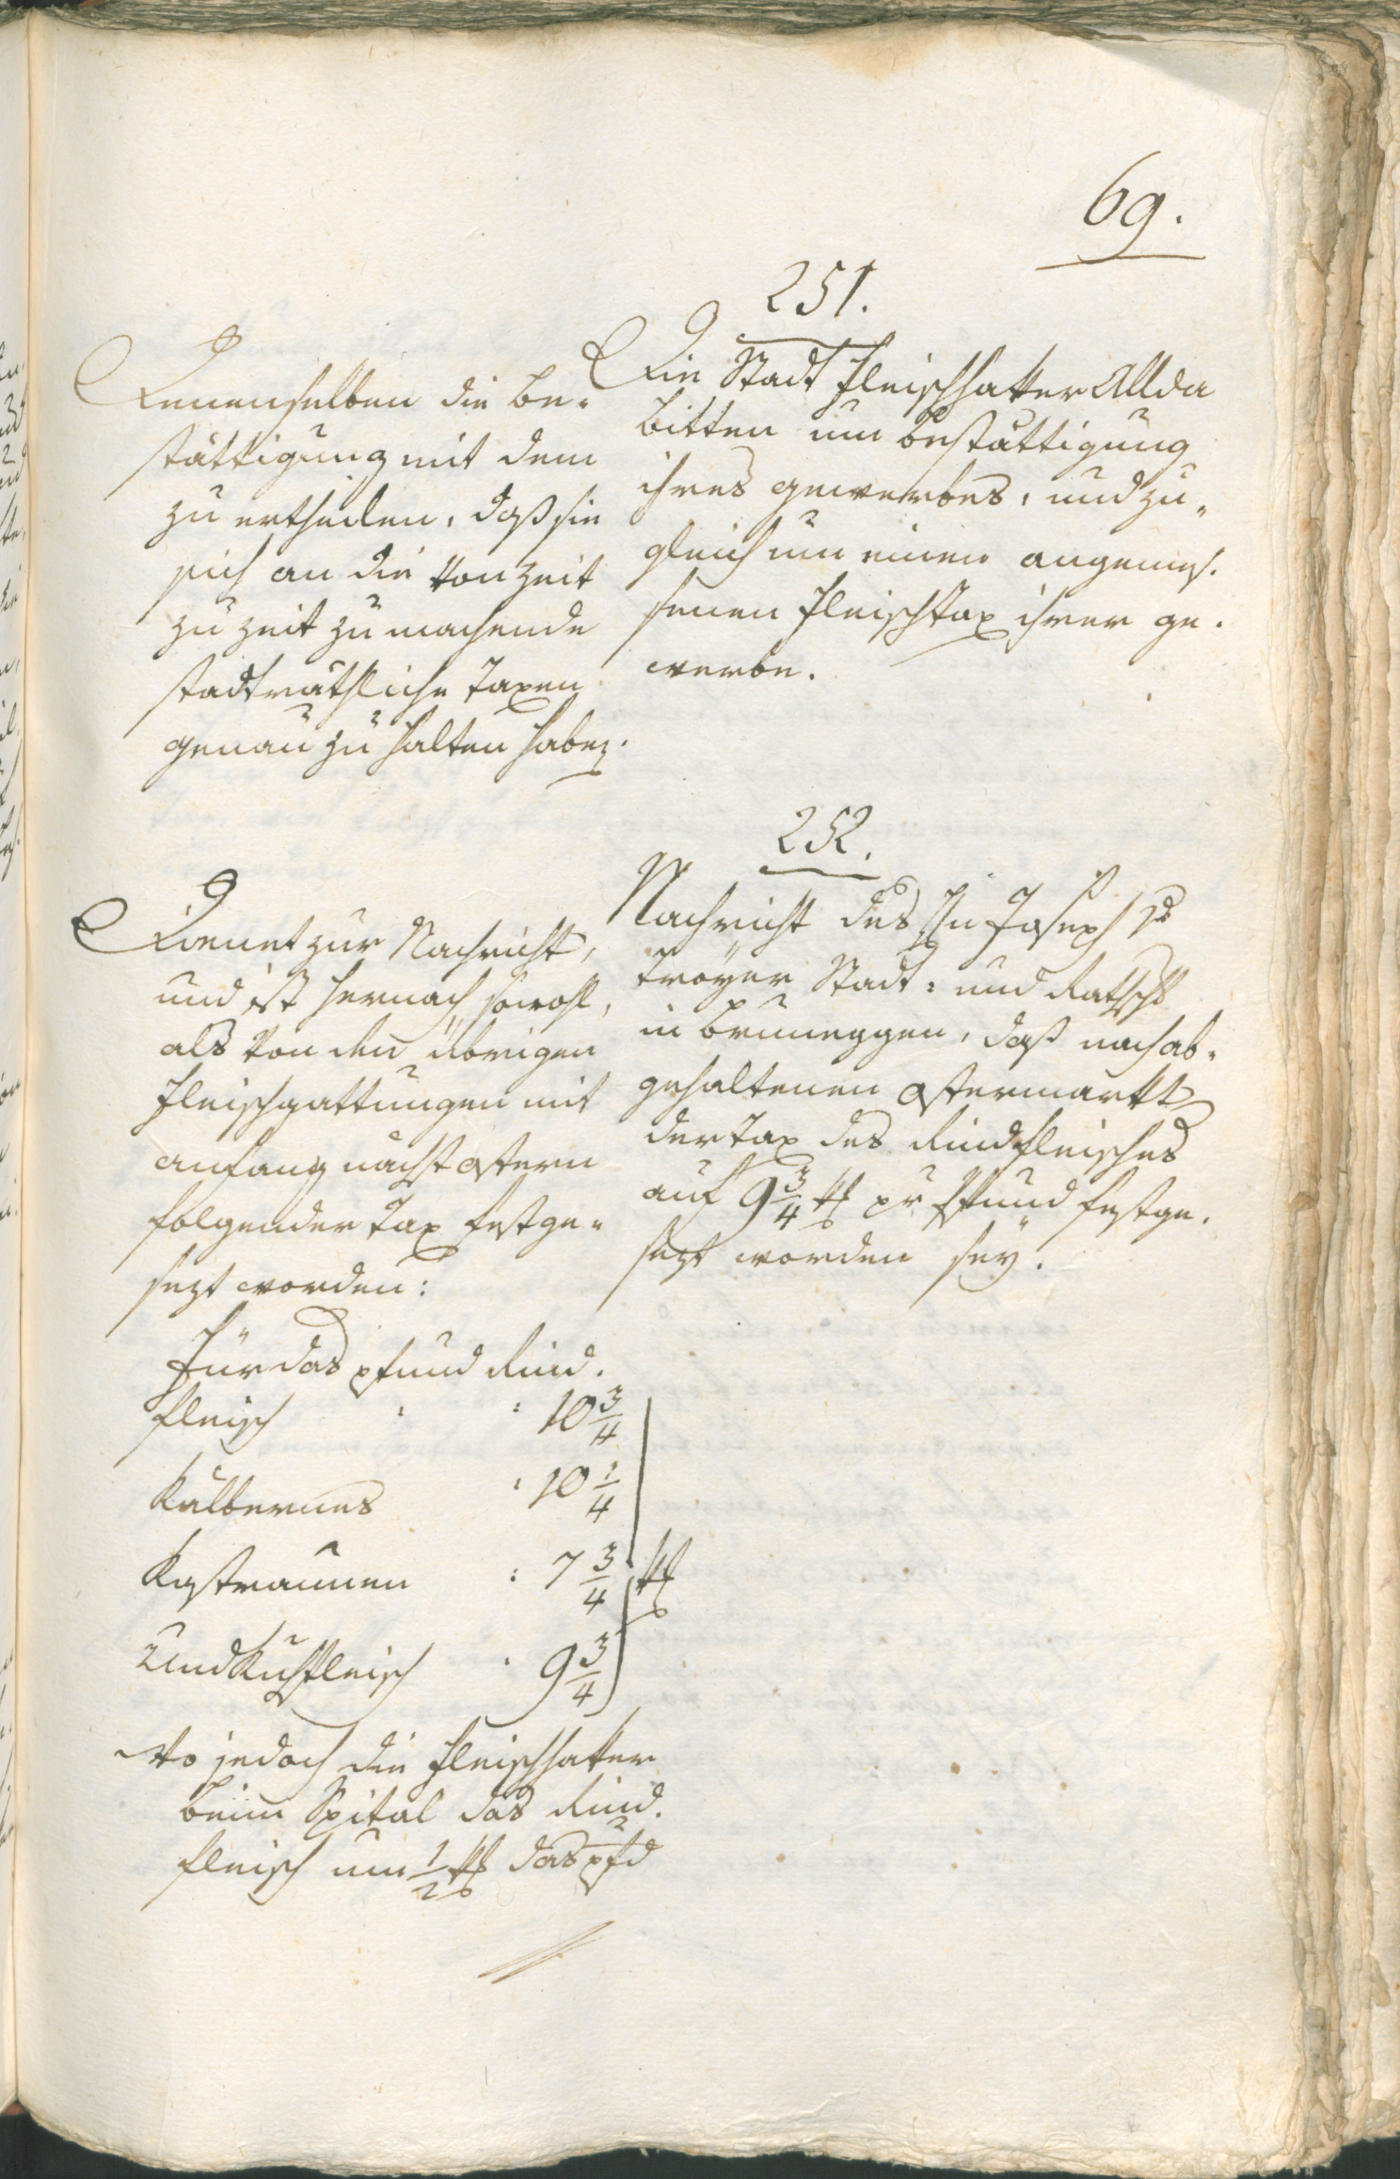 69.
251.
Die Stadt Fleischhaker Allda
bitten um bestättigung
ihres gewerbes, und zu„
gleich um einen angemes.
senen Fleischtax ihrer ge.
werbe.
Denenselben die Be„
stättigung mit dem
zu ertheilen, daß sie
sich an die von Zeit
zu Zeit zu machende
stadträthliche Taxen
genau zu halten haben.
252.
Nachricht des Hn Joseph v
Troÿer Stadt: und
in Bruneggen, daß nach ab„
gehaltenen Ostermarkt
der Tax des Rindfleisches
auf 9 3/4 kr pr Pfund festge.
sezt worden seÿ.
Dienet zur Nachricht,
und ist hernach sowohl,
als von den übrigen
Fleischgattungen mit
anfang nächst Ostern
folgender Tax festge„
sezt worden:
Für das pfund Rind.
fleisch : 10 3/4
Kälbernes : 10 1/4
Kastraunen : 7 3/4 kr
Und Kuhfleisch . 9 3/4
Wo jedoch die Fleischhaker
beim Spital das Rind.
fleisch um 1/2 kr das pfd